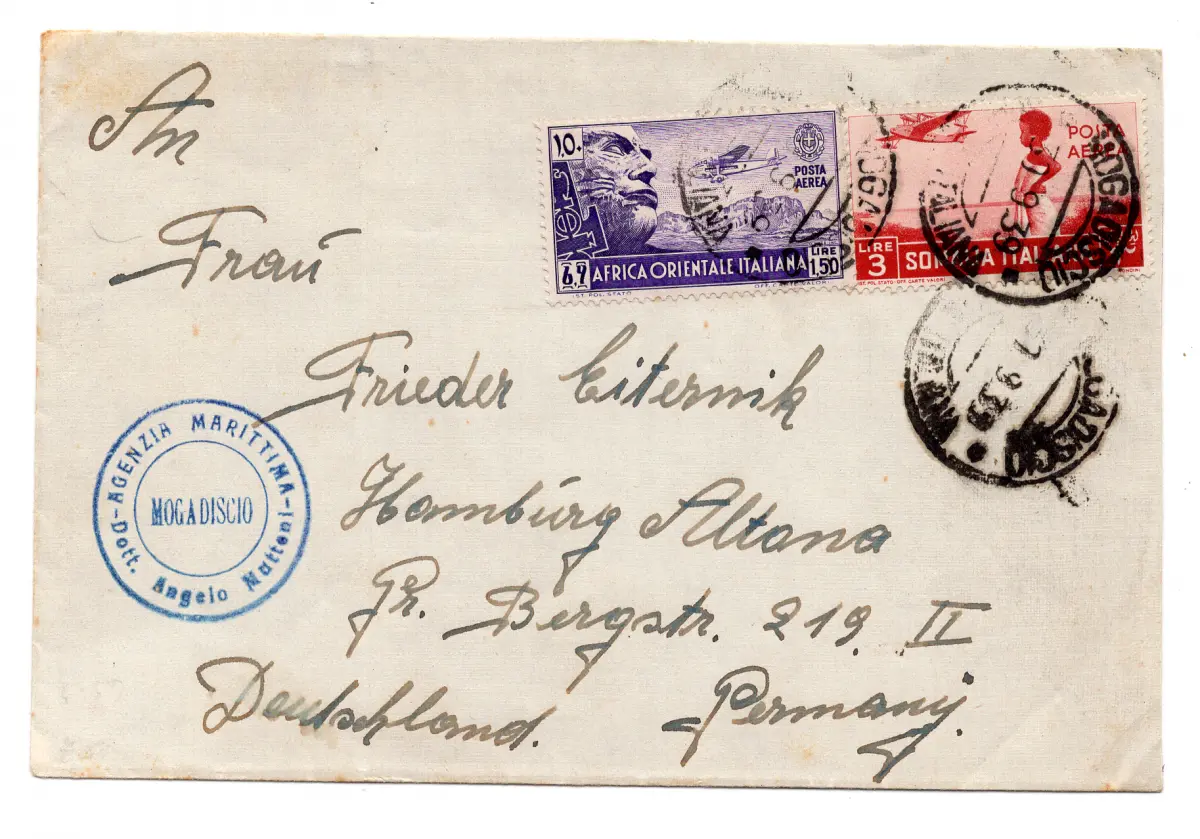 An
Frau
Frieder Eiternik
Hamburg Altona
Gr. Bergstr. 219 II
Deutschland. Germany.
10.
POSTA
AEREA
6.9
AFRICA ORIENTALE ITALIANA
LIRE
1.50
IST. POL. STATO
OFF. CARTE VALORI
POSTA
AEREA
LIRE
3
IST. POL. STATO - OFF. CARTE VALORI
MOGADISCIO
9 39
AGENZIA MARITTIMA
MOGADISCIO
Dott. Angelo